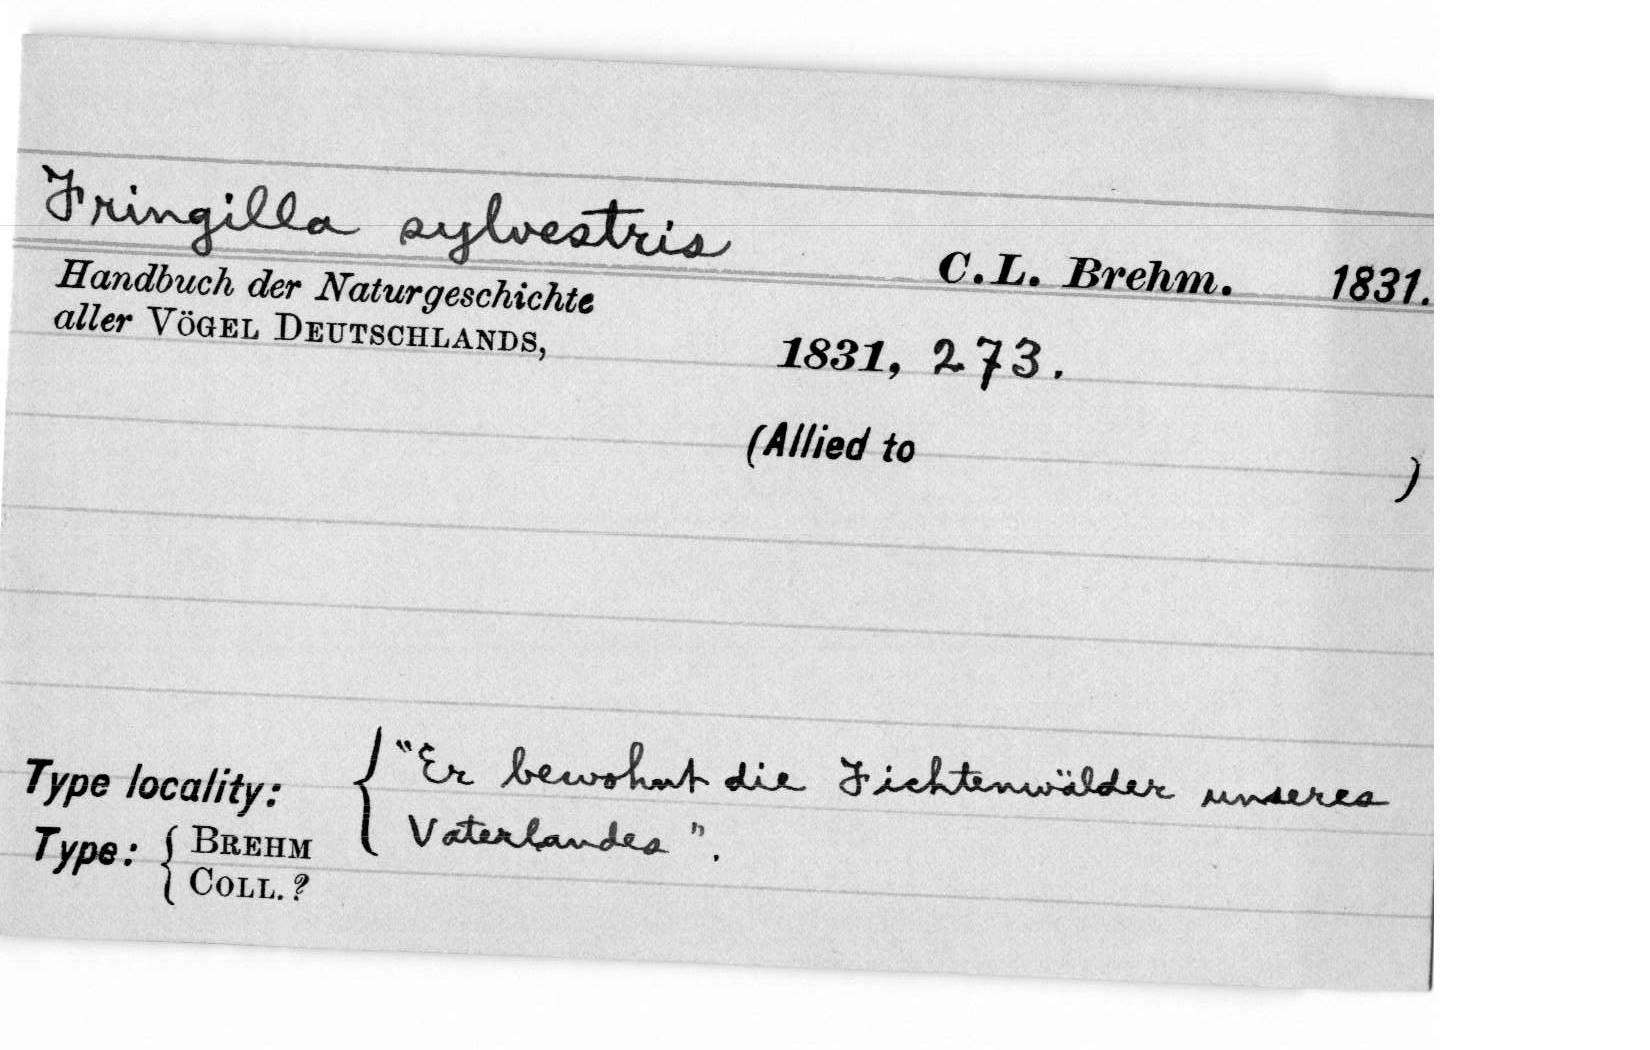 Fringilla sylvestris
C.L. Brehm. 1831.
Handbuch der Naturgeschichte
aller VÖGEL DEUTSCHLANDS,
1831, 273.
(Allied to )
Type locality: { "Er bewohnt die Fichtenwälder unseres
Vaterlandes".
Type: { BREHM
COLL. ?